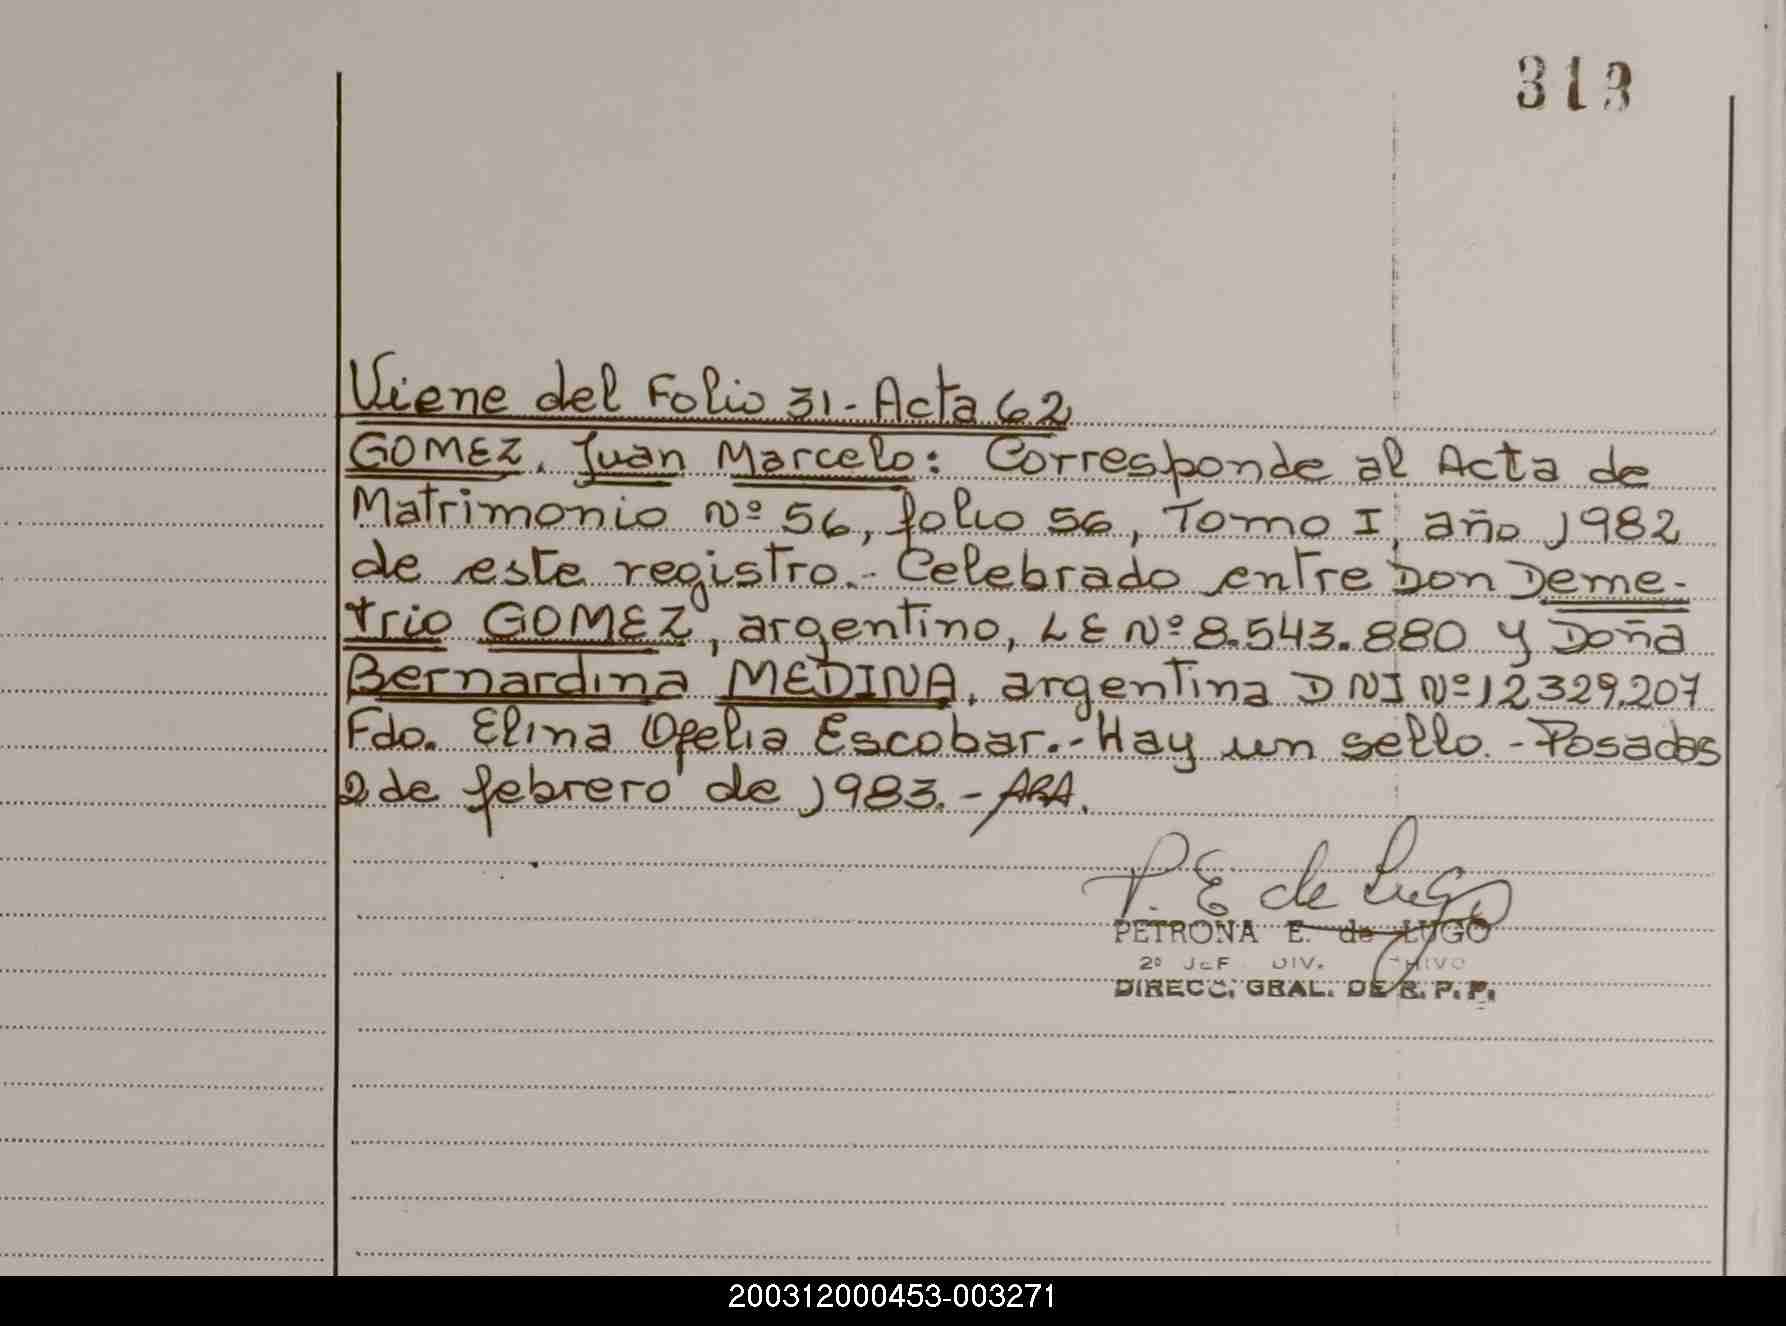 313
Viene del Folio 31 - Acta 62
GOMEZ, Juan Marcelo: Corresponde al Acta de
Matrimonio Nº 56, folio 56, Tomo I, año 1982
de este registro.- Celebrado entre Don Deme-
trio GOMEZ, argentino, L E Nº 8.543.880 y Doña
Bernardina MEDINA, argentina D N I Nº 12329.207
Fdo. Elina Ofelia Escobar.- Hay un sello.- Posadas
2 de febrero de 1983.- ARA.
P. E de Lugo
PETRONA E. de LUGO
2º JEF DIV.
DIRECC. GRAL. DE R. P. P.
200312000453-003271